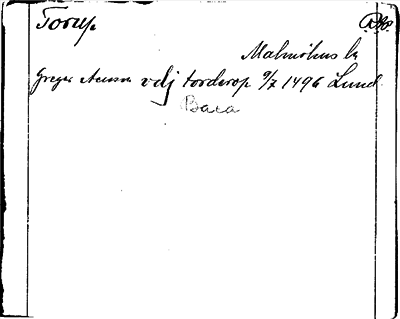 Torup.
Malmöhus l.
Greger vdj torderop 9/7 1496 Lund.
Bara